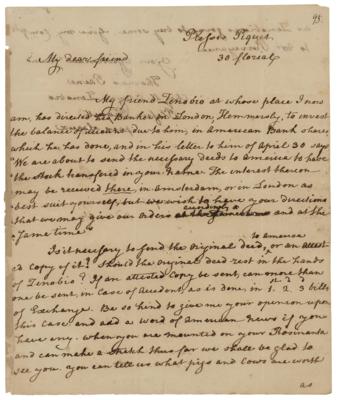 93
Plessis Piquet
30 floreal
My dear friend
My friend Zenobio at whose place I now
am, has directed his Banker in London, Hammersly, to invest
the balance due to him, in American Bank share,
which he has done, and in his letter to him of April 30 says
"We are about to send the necessary deeds to america to have
the Stock transfered in your name. The interest thereon
may be received there, in amsterdam, or in London as
best suit yourself, but we wish to have your directions
that we may give our orders at the
and at the
same time"
Is it necessary to send the original deed, to america or an attest=
ed Copy of it? Should the original deed rest in the hands
of Zenobio? If an attested Copy be sent, can more than
one be sent, in case of accident, as is done, in 1. 2. 3 bills
of Exchange. Be so kind to give me your opinion upon
this case and add a word of american news if you
have any. when you are mounted on your Rosinanta
and can make a stretch thus far we shall be glad to
see you. you can tell us what pigs and cows are worth
as